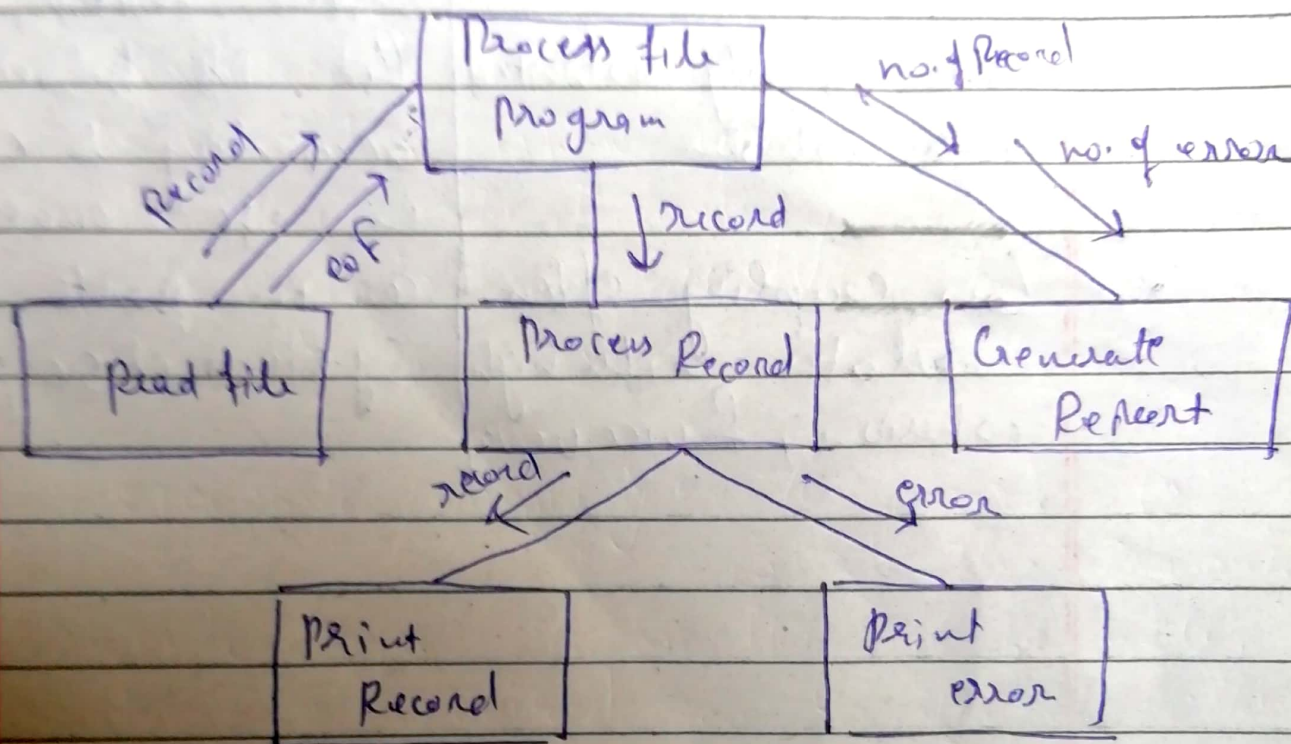 Process file
Program
no. of Record
no. of error
Record
eof
record
Read file
Process Record
Generate
Report
record
error
Print
Record
Print
error